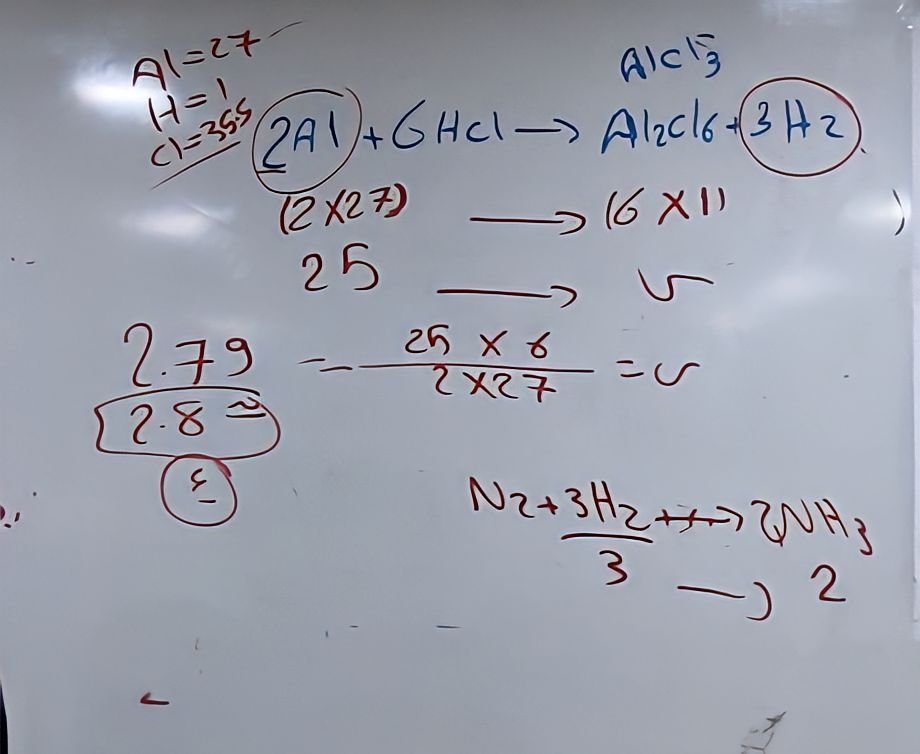 Al=27
H=1
Cl=35.5
AlCl3
2Al+6HCl→Al2Cl6+3H2
(2×27) → (6×1)
25 → س
2.79 = 25×6 / 2×27 = س
2.8 ≈
ع
N2+3H2→2NH3
3 → 2